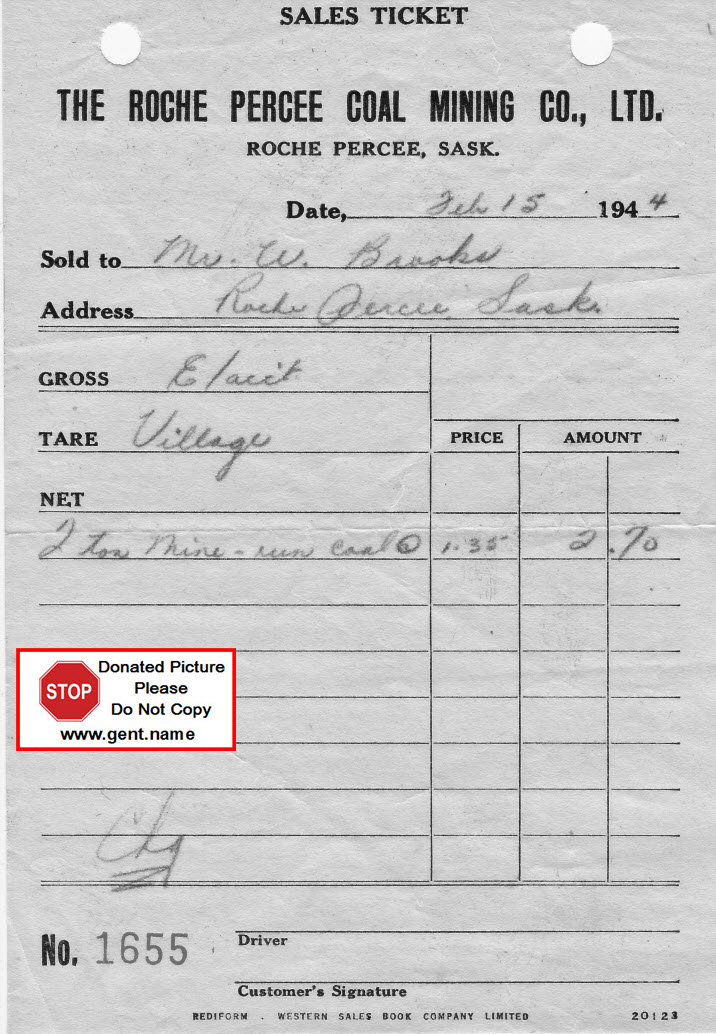 SALES TICKET
THE ROCHE PERCEE COAL MINING CO., LTD.
ROCHE PERCEE, SASK.
Date, Feb 15 1944
Sold to Mr. W. Brooks
Address Roche Percee, Sask.
GROSS
TARE Village
PRICE AMOUNT
NET
2 ton Mine-run coal @ 1.35 2.70
STOP
Donated Picture
Please
Do Not Copy
www.gent.name
Chg
No. 1655
Driver
Customer's Signature
REDIFORM . WESTERN SALES BOOK COMPANY LIMITED 20123